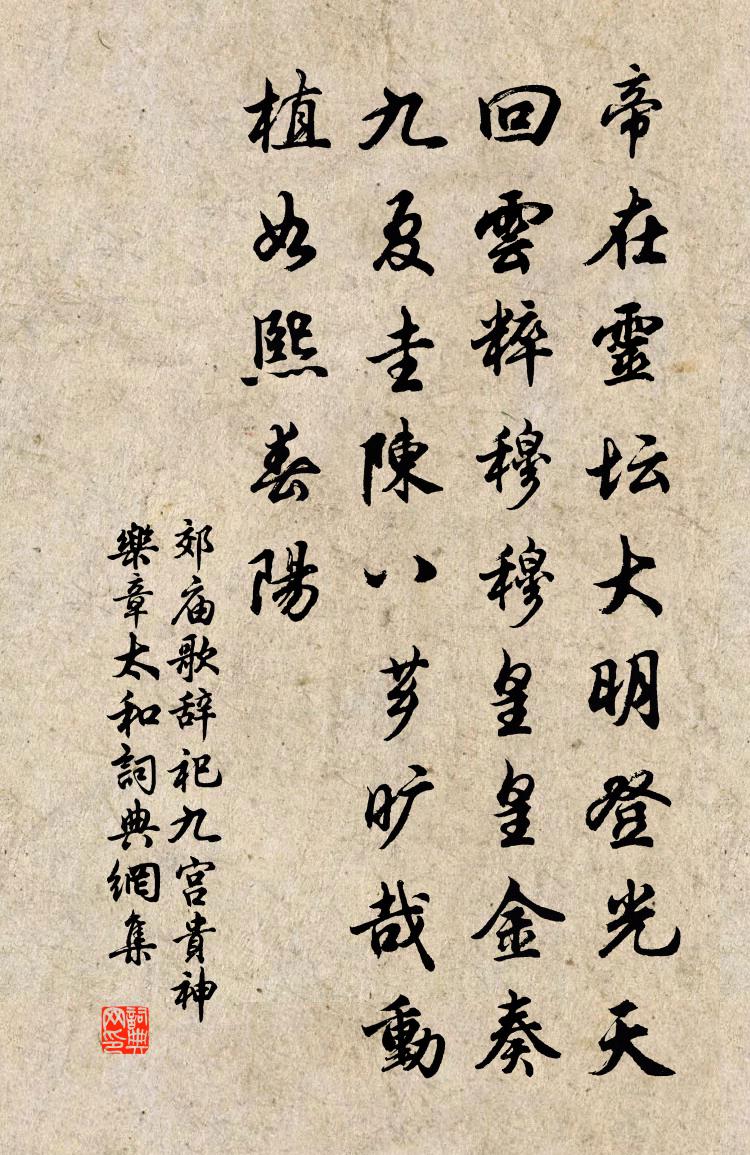 帝在靈坛大明登光天
回雲粹穆穆皇皇金奏
九夏圭陳八芗旷哉動
植如熙春陽
郊庙歌辞祀九宫貴神
樂章太和詞典網集
詞典
网印